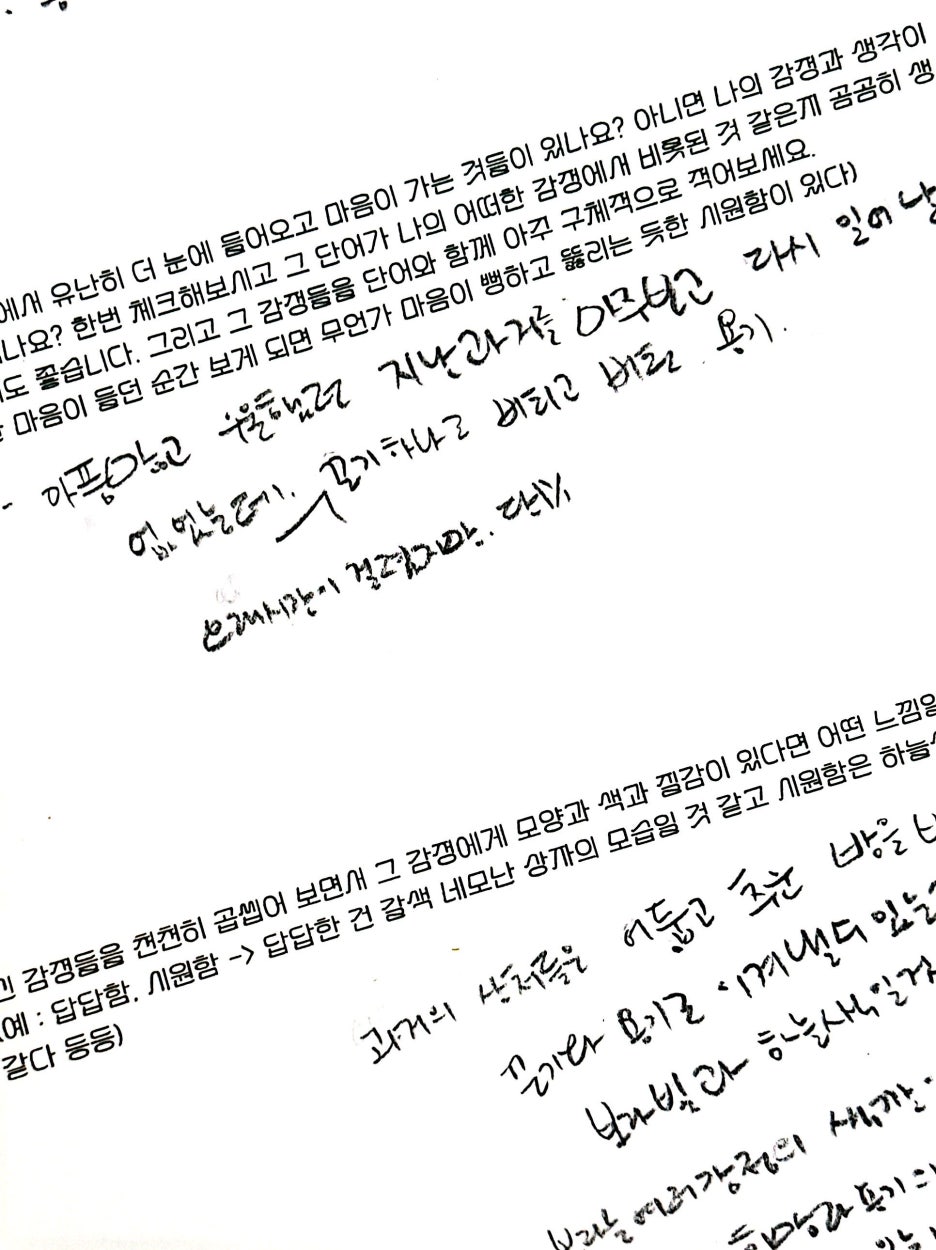 에서 유난히 더 눈에 들어오고 마음이 가는 것들이 있나요? 아니면 나의 감정과 생각이
나요? 한번 체크해보시고 그 단어가 나의 어떠한 감정에서 비롯된 것 같은지 곰곰히 생
도 좋습니다. 그리고 그 감정들을 단어와 함께 아주 구체적으로 적어보세요.
마음이 들던 순간 보게 되면 무언가 마음이 뻥하고 뚫리는 듯한 시원함이 있다)
- 아픔많고 우울했던 지난과거를 아무렇고 다시 일어
끈기하나로 버티고 버틴 용기.
오래시간이 걸렸지만. 단1%
긴 감정들을 천천히 곱씹어 보면서 그 감정에게 모양과 색과 질감이 있다면 어떤 느낌일
예 : 답답함, 시원함 -> 답답한 건 갈색 네모난 상자의 모습일 것 같고 시원함은 하늘
같다 등등)
과거의 상처들은 어둡고 추운 방을
끈기와 용기로 이겨낼수 있는
보라빛과 하늘색일것
보라는 여러감정의 색깔.
희망과 용기의